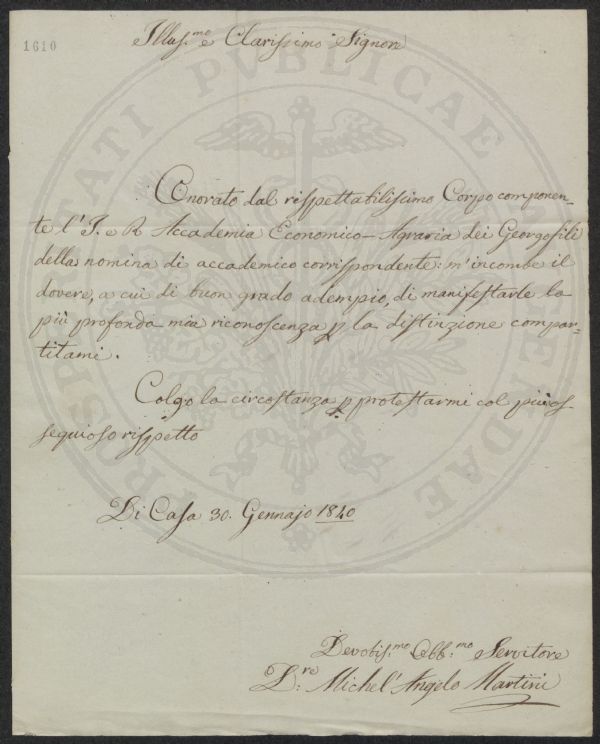 1610
Illus.mo e Clarissimo Signore
Onorato dal rispettabilissimo Corpo componen-
te l'I. e R. Accademia Economico-Agraria dei Georgofili
della nomina di accademico corrispondente: m'incombe il
dovere, a cui di buon grado adempio, di manifestarle la
più profonda mia riconoscenza p la distinzione compar-
titami.
Colgo la circostanza p protestarmi col più os-
sequioso rispetto
Di Casa 30. Gennajo 1840
Devotis.mo Obb.mo Servitore
D.re Michel'Angelo Martini
PROSPERITATI PVBLICAE AVGENDAE